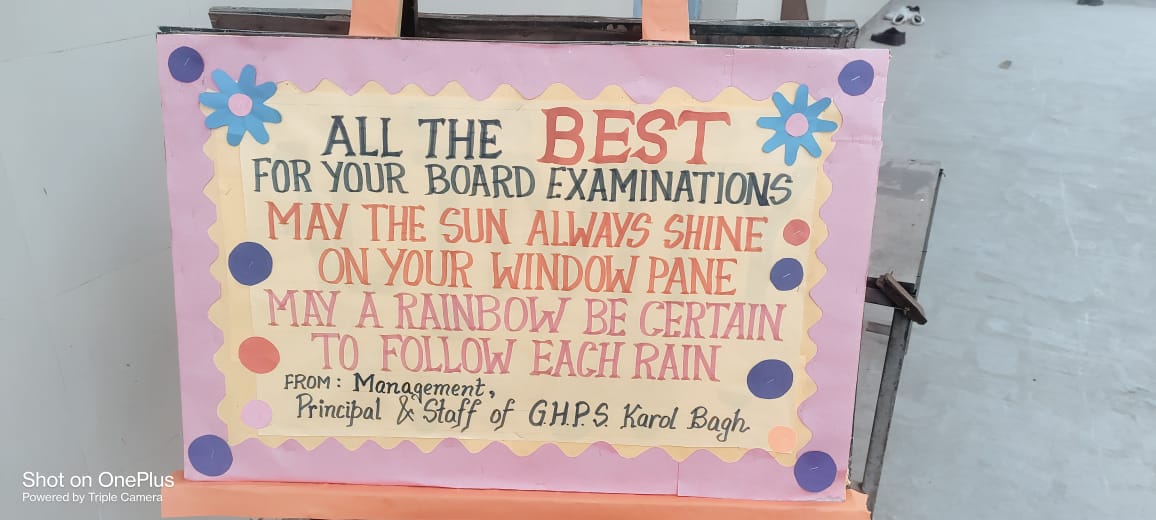 ALL THE BEST
FOR YOUR BOARD EXAMINATIONS
MAY THE SUN ALWAYS SHINE
ON YOUR WINDOW PANE
MAY A RAINBOW BE CERTAIN
TO FOLLOW EACH RAIN
FROM: Management,
Principal & Staff of G.H.P.S. Karol Bagh
Shot on OnePlus
Powered by Triple Camera